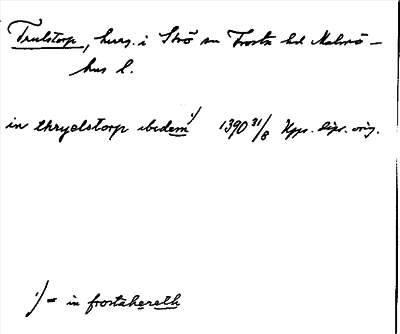 Trulstorp, husg. i Strö sn Frosta hd Malmö-
hus l.
in thryelstorp ibidem 1/ 1390 31/8 Upps. dipl. orig.
1/ = in frostahereth